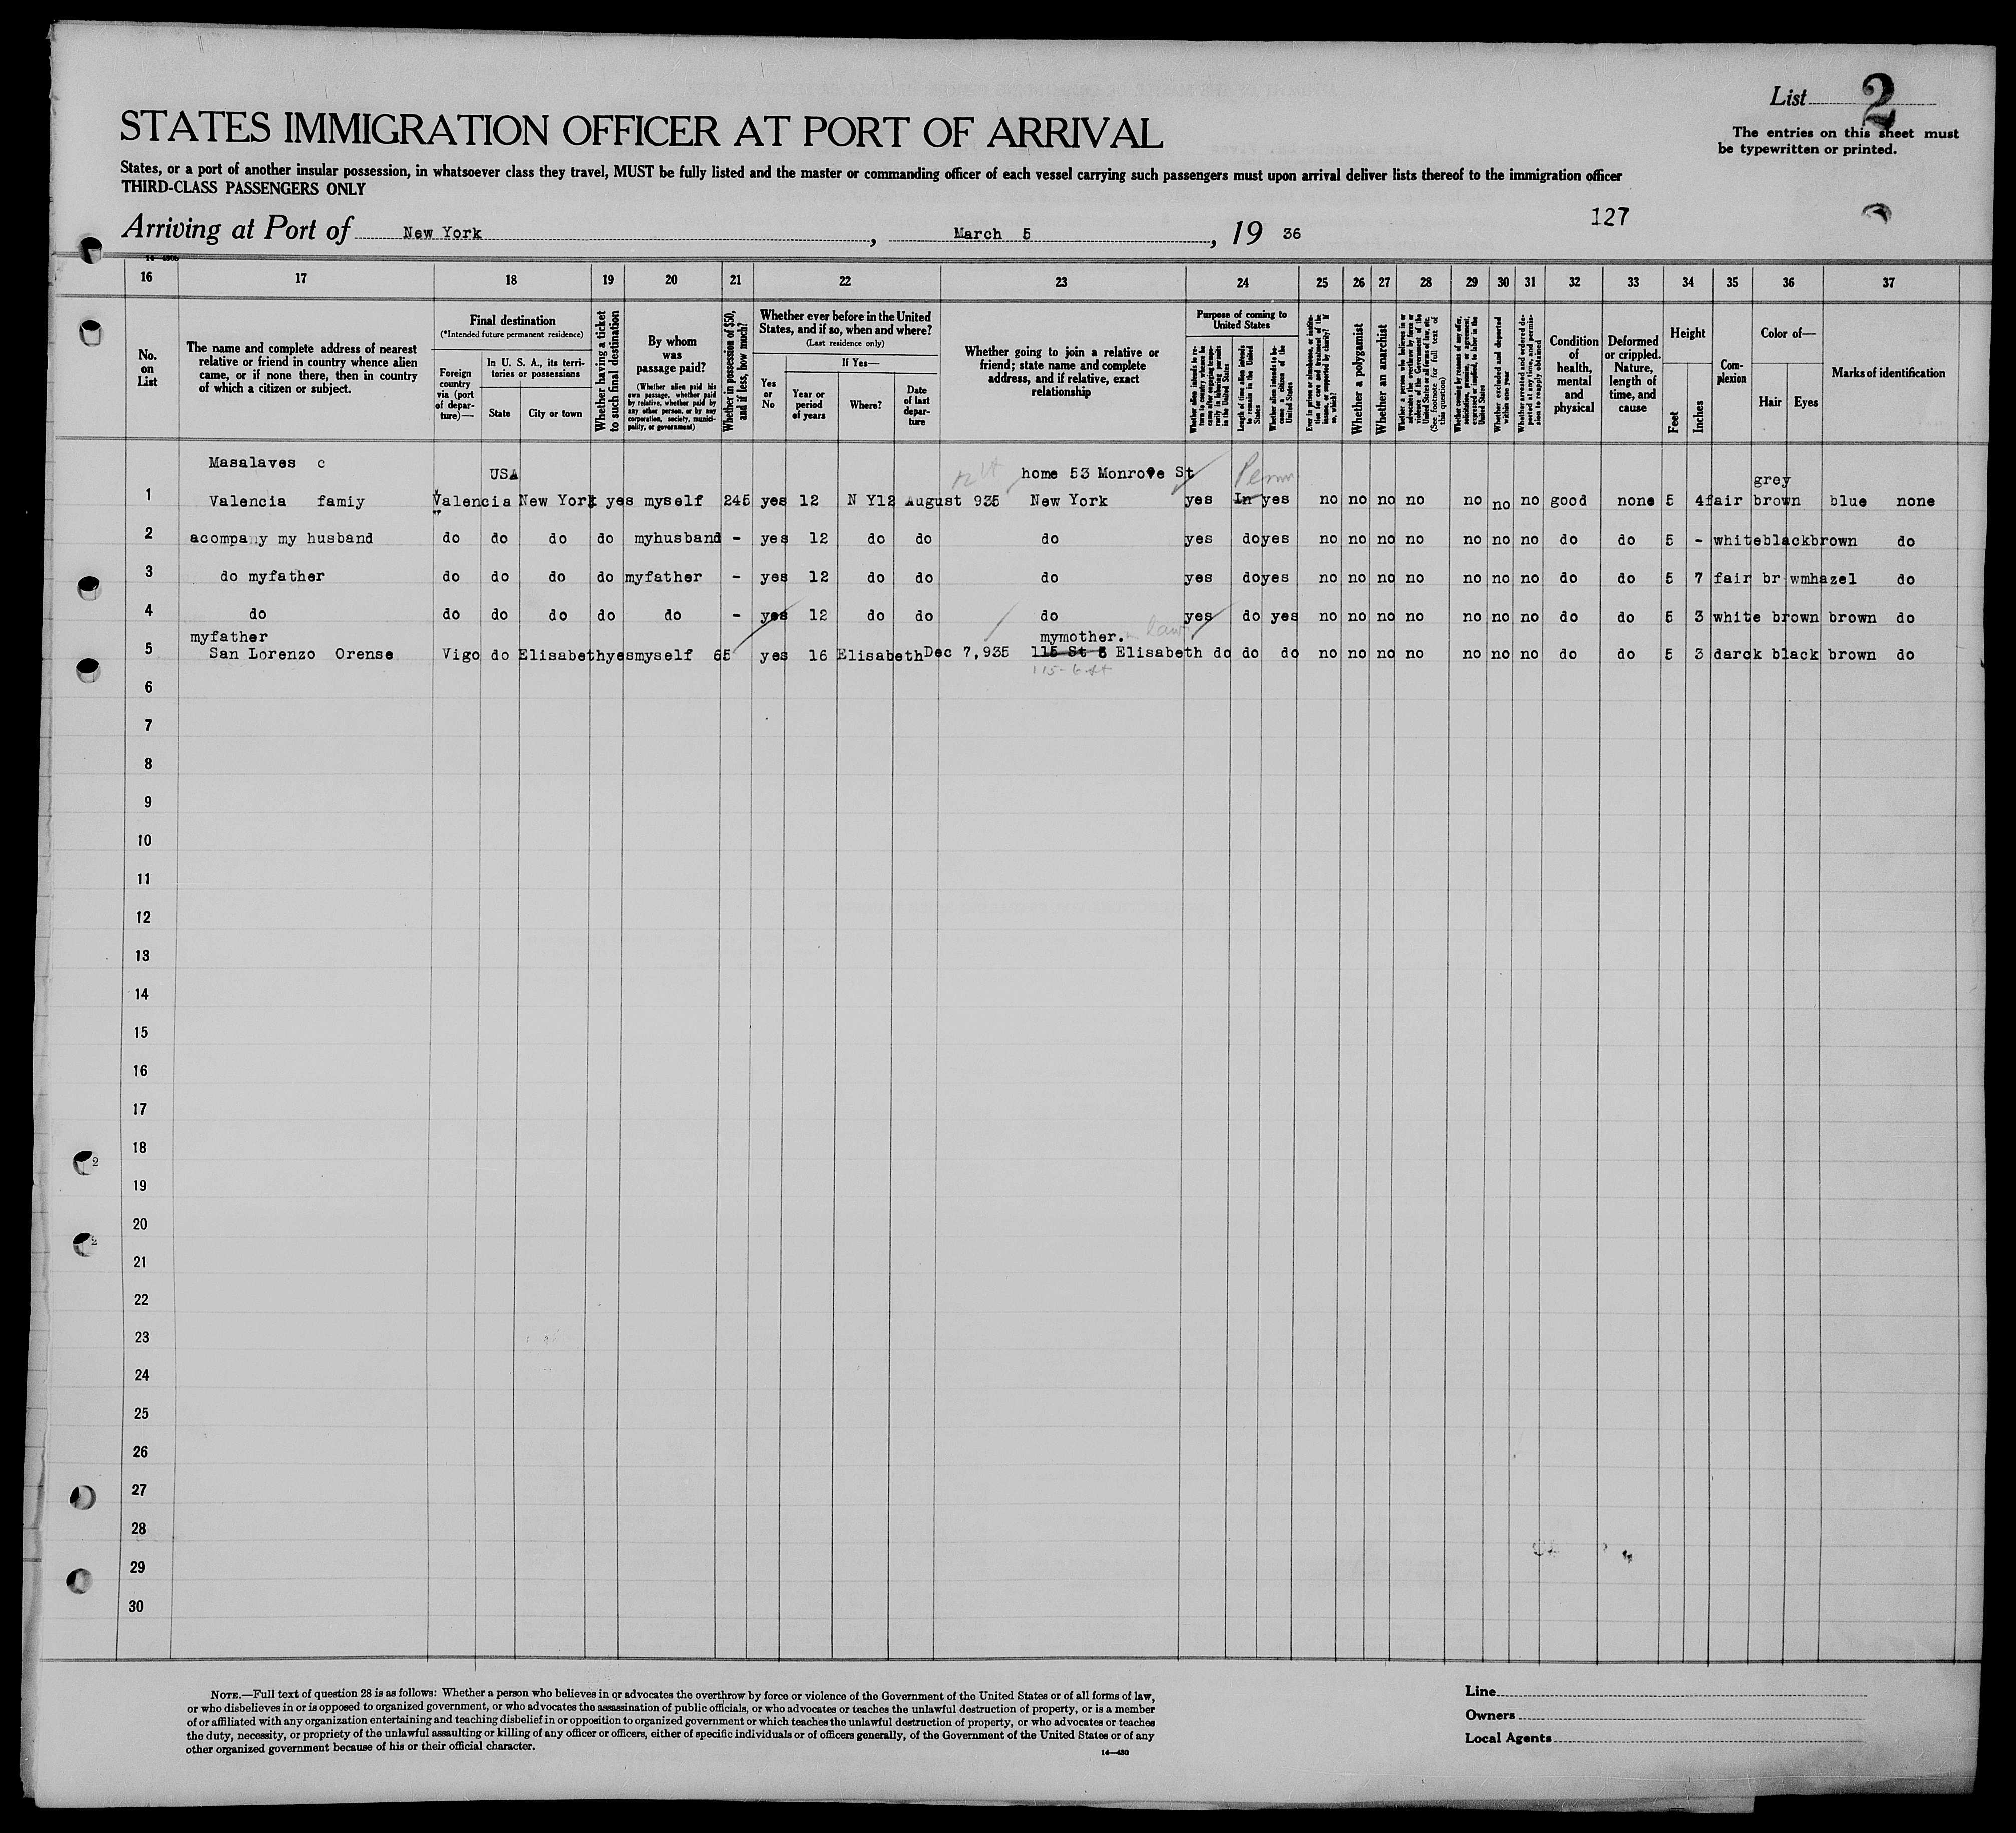 List 2
STATES IMMIGRATION OFFICER AT PORT OF ARRIVAL
The entries on this sheet must
be typewritten or printed.
States, or a port of another insular possession, in whatsoever class they travel, MUST be fully listed and the master or commanding officer of each vessel carrying such passengers must upon arrival deliver lists thereof to the immigration officer
THIRD-CLASS PASSENGERS ONLY
127
Arriving at Port of New York, March 5, 19 36
16 17 18 19 20 21 22 23 24 25 26 27 28 29 30 31 32 33 34 35 36 37
No. on List
The name and complete address of nearest
relative or friend in country whence alien
came, or if none there, then in country
of which a citizen or subject.
Final destination
(*Intended future permanent residence)
Foreign country via (port of departure)—
In U. S. A., its territories or possessions
State
City or town
Whether having a ticket to such final destination
By whom was passage paid?
(Whether alien paid his own passage, whether paid by relative, whether paid by any other person, or by any corporation, society, municipality, or government)
Whether in possession of $50, and if less, how much?
Whether ever before in the United
States, and if so, when and where?
(Last residence only)
Yes or No
If Yes—
Year or period of years
Where?
Date of last departure
Whether going to join a relative or
friend; state name and complete
address, and if relative, exact
relationship
Purpose of coming to United States
Whether alien intends to return to country whence he came after engaging temporarily in laboring pursuits in the United States
Length of time alien intends to remain in the United States
Whether alien intends to become a citizen of the United States
Ever in prison or almshouse, or institution for care and treatment of the insane, or supported by charity? If so, which?
Whether a polygamist
Whether an anarchist
Whether a person who believes in or advocates the overthrow by force or violence of the Government of the United States or all forms of law, etc. (See footnote for full text of this question)
Whether coming by reason of any offer, solicitation, promise, or agreement, expressed or implied, to labor in the United States
Whether excluded and deported within one year
Whether arrested and ordered deported at any time, and permission to reapply obtained
Condition of health, mental and physical
Deformed or crippled. Nature, length of time, and cause
Height
Feet
Inches
Complexion
Color of—
Hair
Eyes
Marks of identification
Masalaves c
USA
home 53 Monroe St
Perm
grey
1 Valencia famiy Valencia New York yes myself 245 yes 12 N Y12 August 935 New York yes In yes no no no no no no no good none 5 4 fair brown blue none
2 acompany my husband do do do do myhusband - yes 12 do do do yes do yes no no no no no no no do do 5 - white black brown do
3 do myfather do do do do myfather - yes 12 do do do yes do yes no no no no no no no do do 5 7 fair br wm hazel do
4 do do do do do do - yes 12 do do do yes do yes no no no no no no no do do 5 3 white brown brown do
myfather mymother. in law
5 San Lorenzo Orense Vigo do Elisabeth yes myself 65 yes 16 Elisabeth Dec 7,935 115 St 5 Elisabeth do do do no no no no no no no do do 5 3 darck black brown do
115-6 St
6
7
8
9
10
11
12
13
14
15
16
17
18
19
20
21
22
23
24
25
26
27
28
29
30
NOTE.—Full text of question 28 is as follows: Whether a person who believes in or advocates the overthrow by force or violence of the Government of the United States or of all forms of law,
or who disbelieves in or is opposed to organized government, or who advocates the assassination of public officials, or who advocates or teaches the unlawful destruction of property, or is a member
of or affiliated with any organization entertaining and teaching disbelief in or opposition to organized government or which teaches the unlawful destruction of property, or who advocates or teaches
the duty, necessity, or propriety of the unlawful assaulting or killing of any officer or officers, either of specific individuals or of officers generally, of the Government of the United States or of any
other organized government because of his or their official character.
14—430
Line
Owners
Local Agents